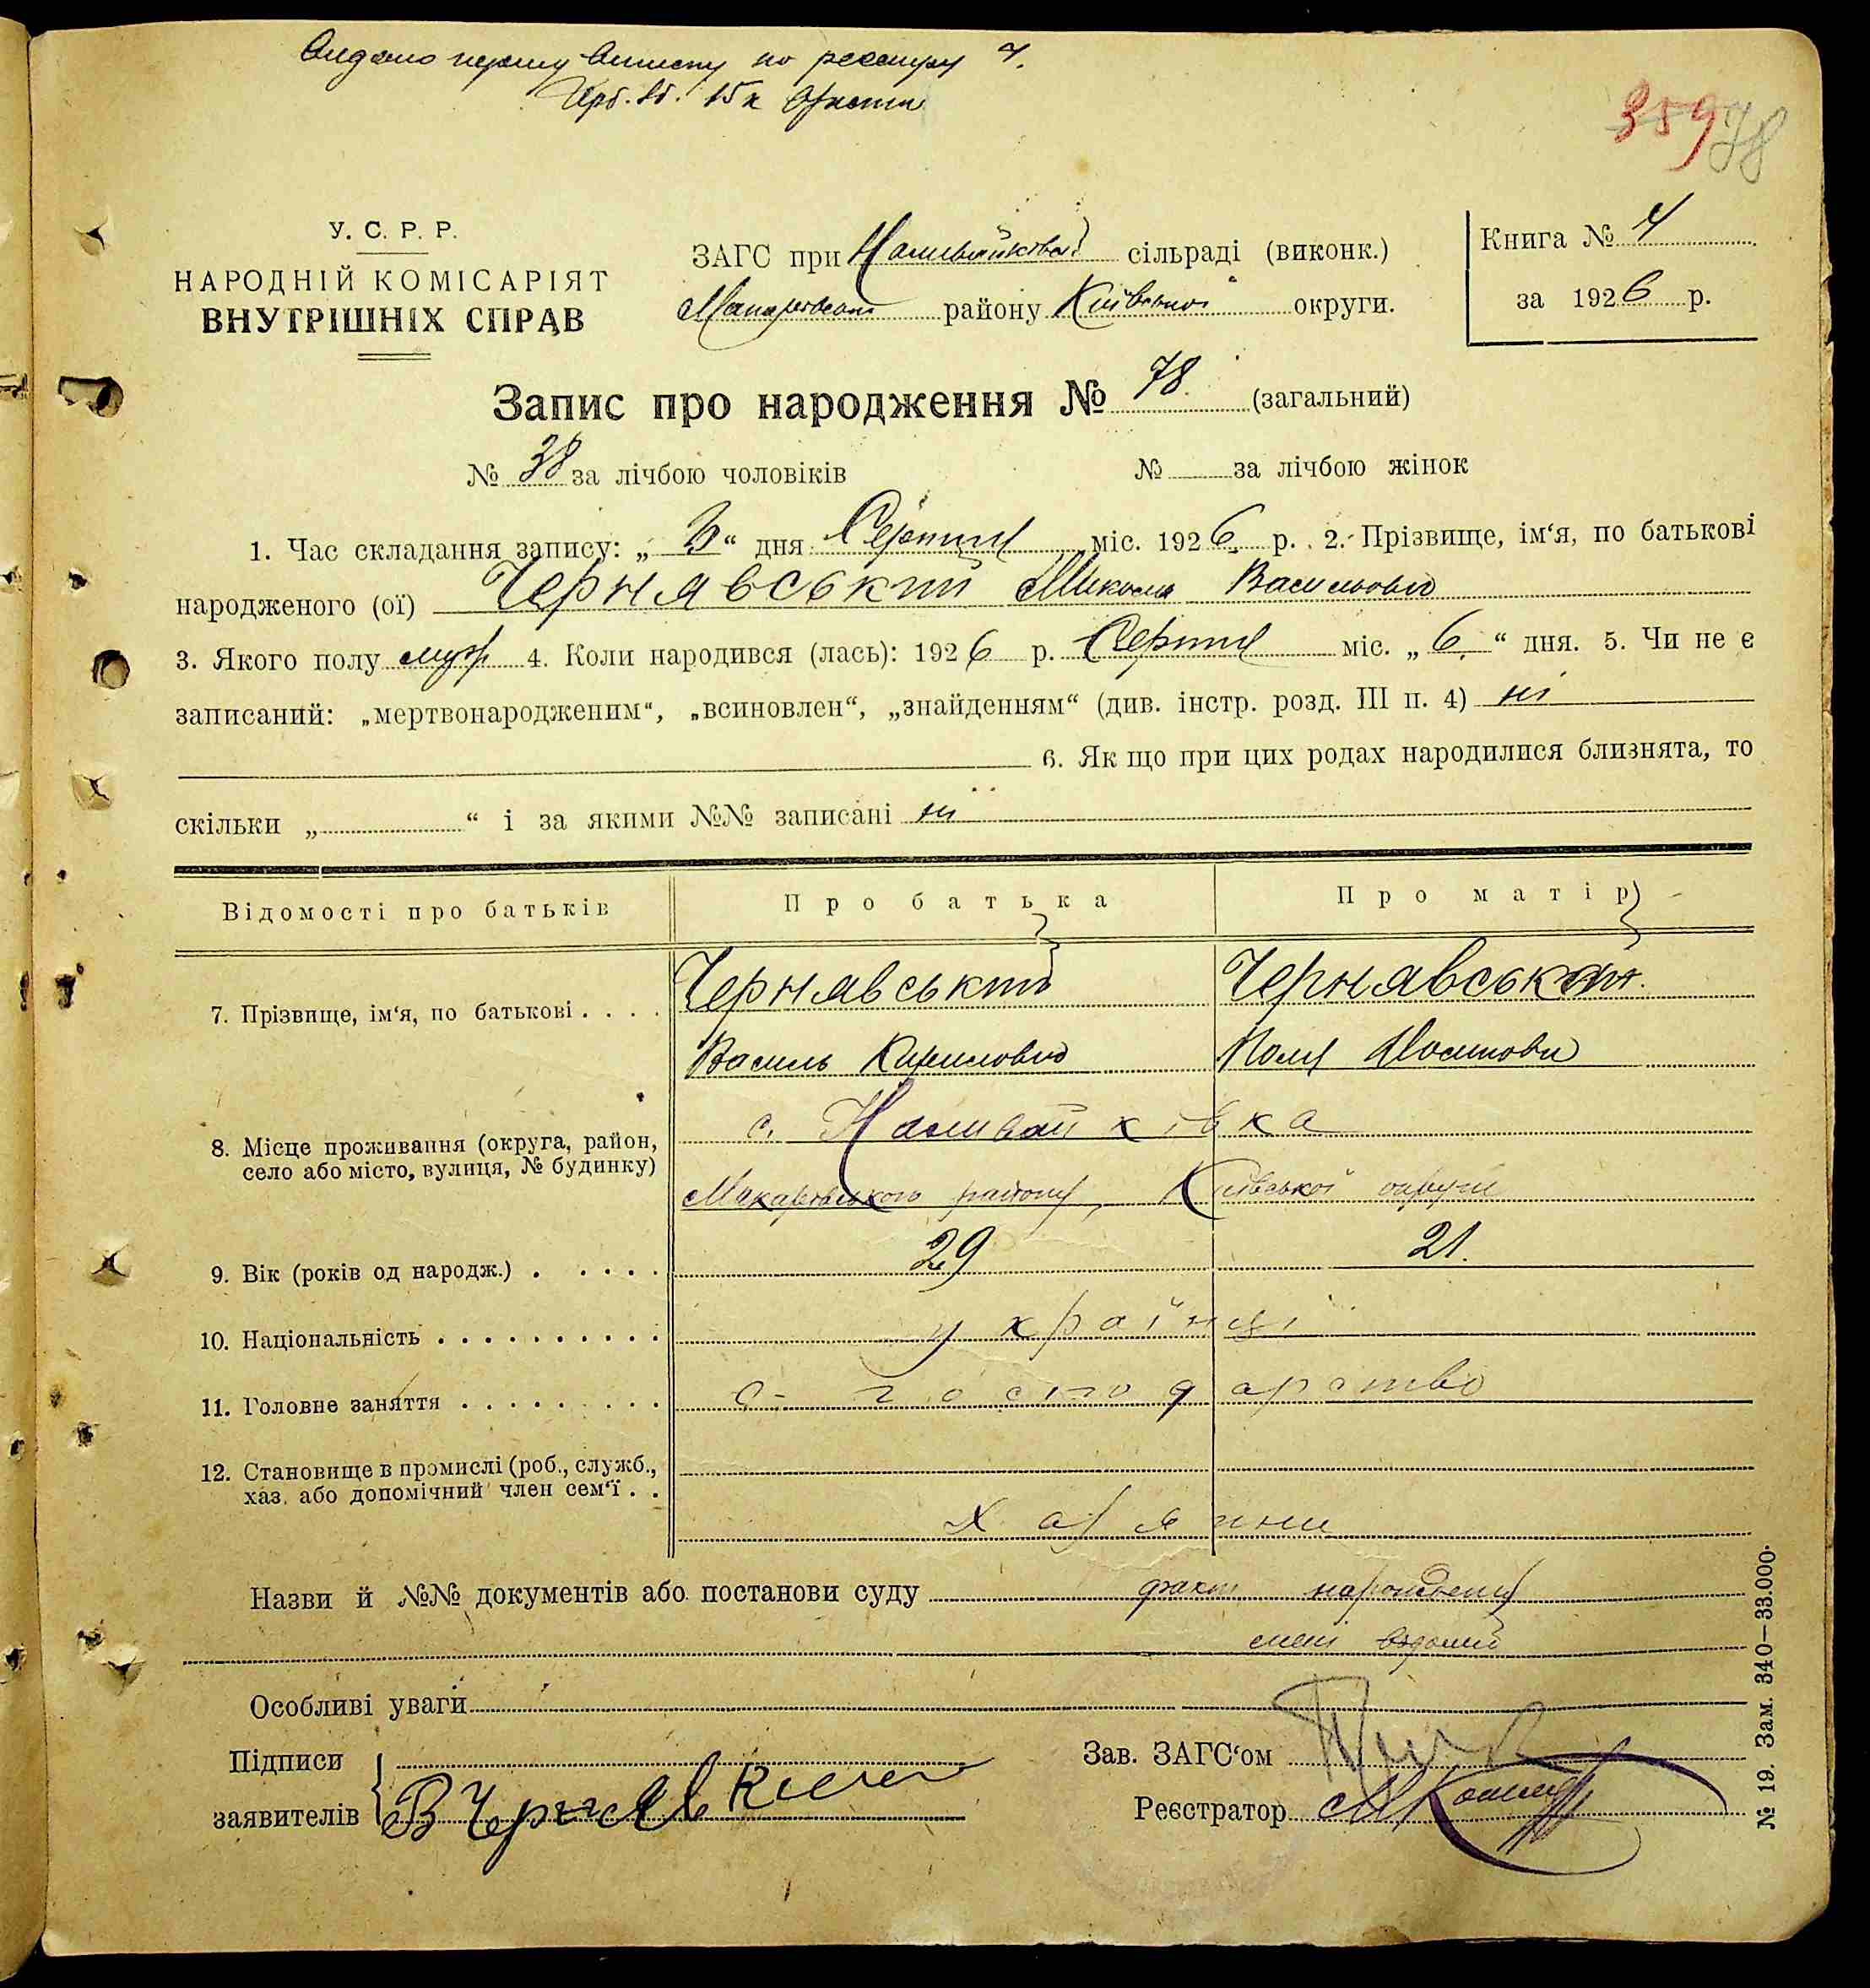 Видано першу виписку по реєстру 4.
359 78
У. С. Р. Р.
НАРОДНІЙ КОМІСАРІЯТ
ВНУТРІШНІХ СПРАВ
ЗАГС при Наливайківськ. сільраді (виконк.)
Макарівськ. району Київської округи.
Книга № 4
за 1926 р.
Запис про народження № 78. (загальний)
№ 38 за лічбою чоловіків № за лічбою жінок
1. Час складання запису: „ “ дня Серпня міс. 1926. р. 2. Прізвище, ім‘я, по батькові
народженого (ої) Чернявський Микола Васильович
3. Якого полу муж 4. Коли народився (лась): 1926 р. Серпня міс. „ 6. “ дня. 5. Чи не є
записаний: „мертвонародженим“, „всиновлен“, „знайденням“ (див. інстр. розд. III п. 4) ні
6. Як що при цих родах народилися близнята, то
скільки „ “ і за якими №№ записані ні
Відомості про батьків Про батька Про матір
7. Прізвище, ім‘я, по батькові . . . . Чернявський Чернявська
Василь Кирилович
8. Місце проживання (округа, район, с. Наливайківка
село або місто, вулиця, № будинку) Макарівського району, Київської округи
9. Вік (років од народж.) . . . . . 29 21.
10. Національність . . . . . . . . . . українці
11. Головне заняття . . . . . . . . . с- господарство
12. Становище в промислі (роб., служб.,
хаз. або допомічний член сем‘ї . . хазяини
Назви й №№ документів або постанови суду факт народження
мені відомий
Особливі уваги
Підписи
заявителів В Чернявский
Зав. ЗАГС‘ом
Реєстратор
№ 19. Зам. 340—33.000.